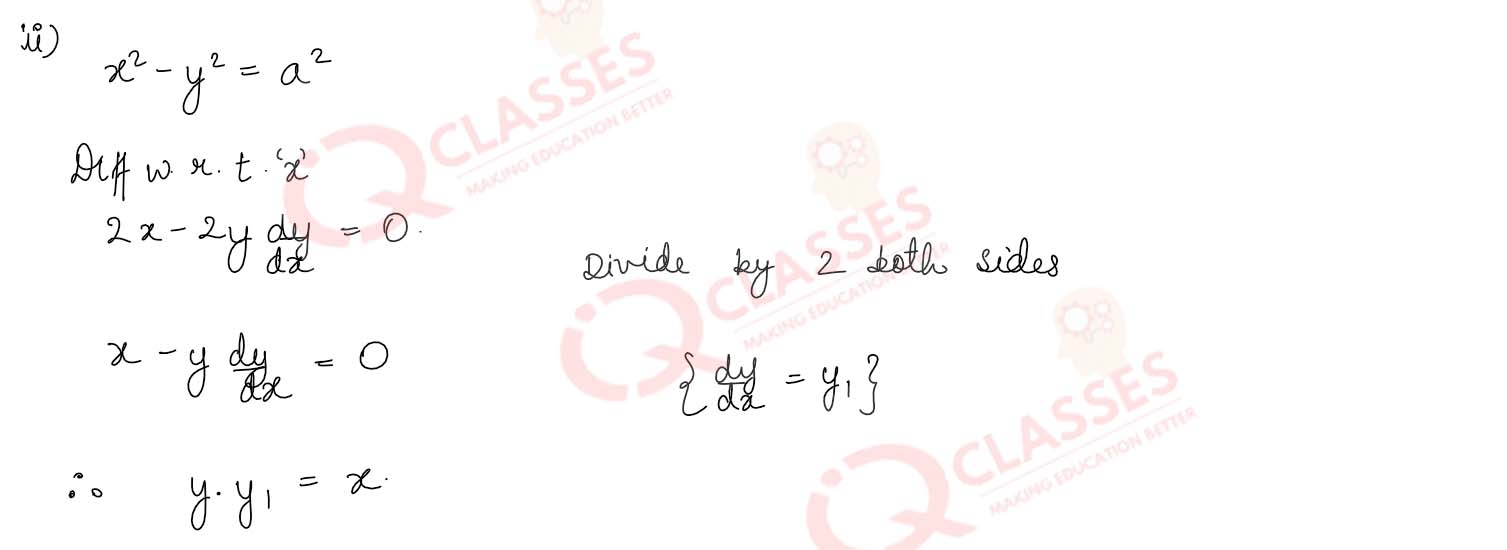 ii)
x² - y² = a²
Diff w.r.t. 'x'
2x - 2y dy/dx = 0.
Divide by 2 both sides
x - y dy/dx = 0
{dy/dx = y₁}
∴ y. y₁ = x.
iQ CLASSES
MAKING EDUCATION BETTER
iQ CLASSES
MAKING EDUCATION BETTER
iQ CLASSES
MAKING EDUCATION BETTER